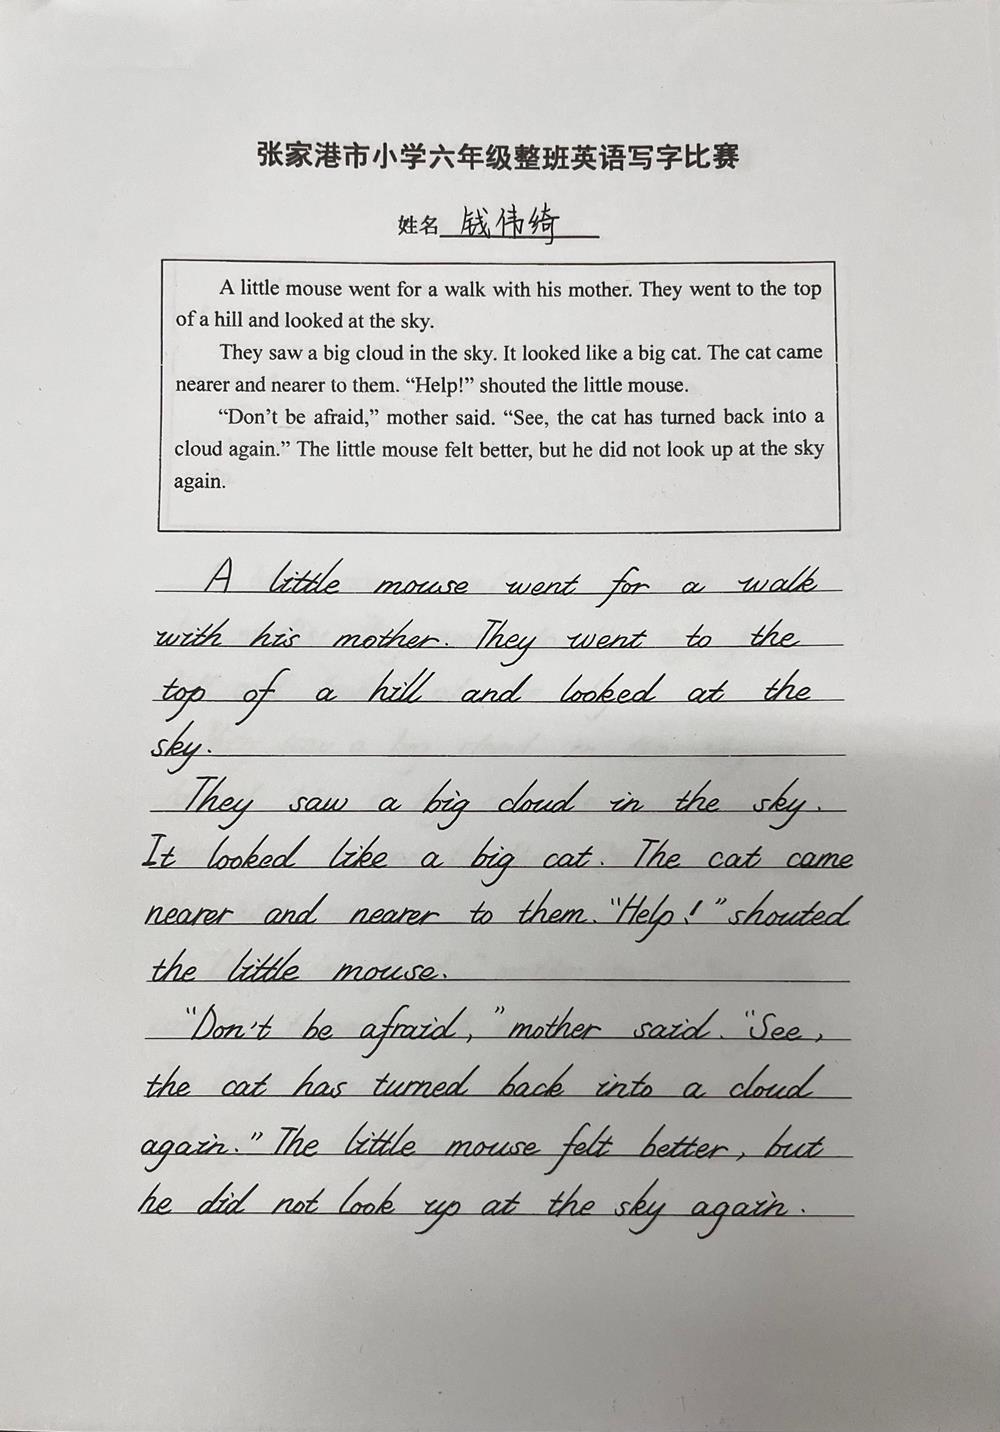 张家港市小学六年级整班英语写字比赛
姓名 钱伟绮
A little mouse went for a walk with his mother. They went to the top
of a hill and looked at the sky.
They saw a big cloud in the sky. It looked like a big cat. The cat came
nearer and nearer to them. “Help!” shouted the little mouse.
“Don’t be afraid,” mother said. “See, the cat has turned back into a
cloud again.” The little mouse felt better, but he did not look up at the sky
again.
A little mouse went for a walk
with his mother. They went to the
top of a hill and looked at the
sky.
They saw a big cloud in the sky.
It looked like a big cat. The cat came
nearer and nearer to them. “Help!” shouted
the little mouse.
“Don't be afraid,” mother said. “See,
the cat has turned back into a cloud
again.” The little mouse felt better, but
he did not look up at the sky again.